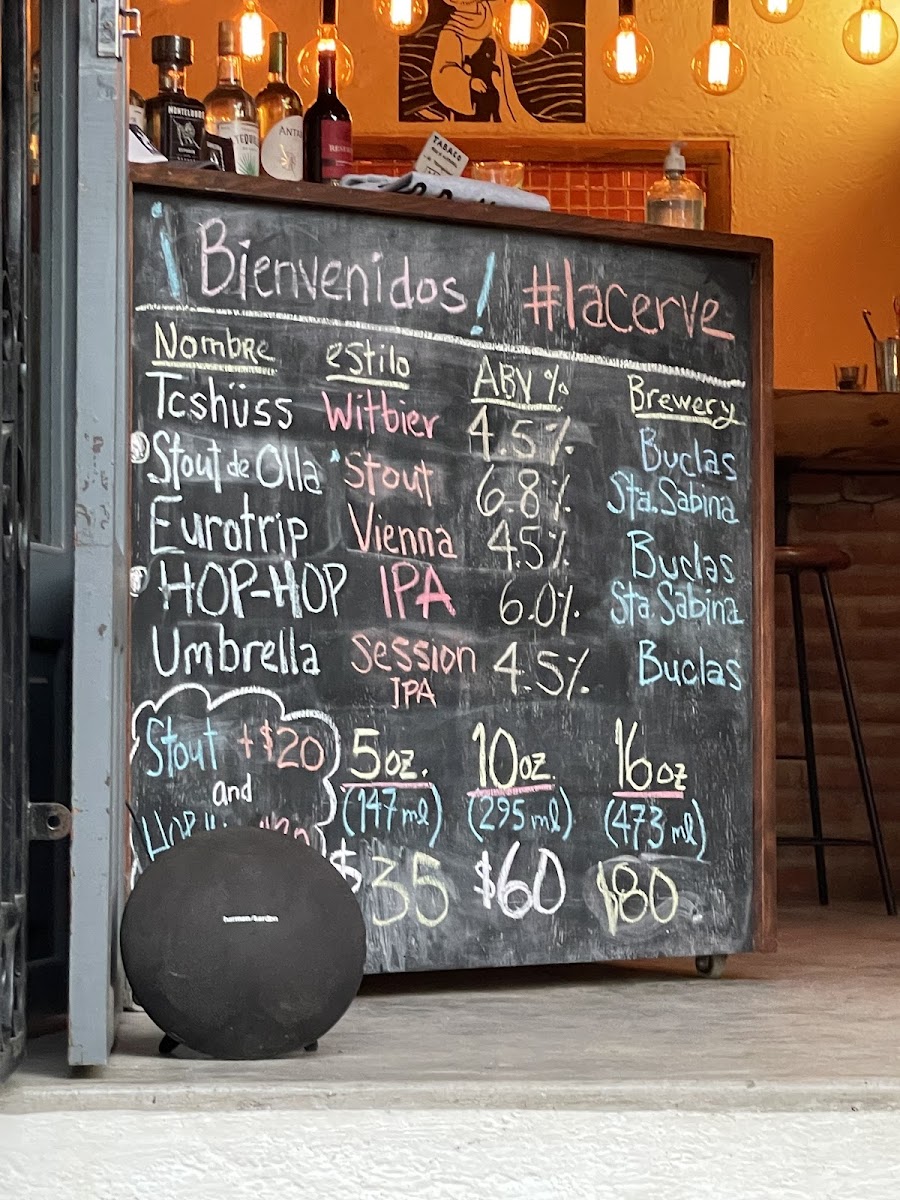 MONTELOBOS
TEQUILA
ANTA
RESERVA
TABACO
¡Bienvenidos! #lacerve
Nombre estilo ABV % Brewery
Tcshüss Witbier 4.5% Buclas
Stout de Olla *Stout 6.8% Sta. Sabina
Eurotrip Vienna 4.5% Buclas
HOP-HOP IPA 6.0% Sta. Sabina
Umbrella Session IPA 4.5% Buclas
Stout +$20
and
5oz. 10oz. 16oz
(147 ml) (295 ml) (473 ml)
$35 $60 $80
harman/kardon